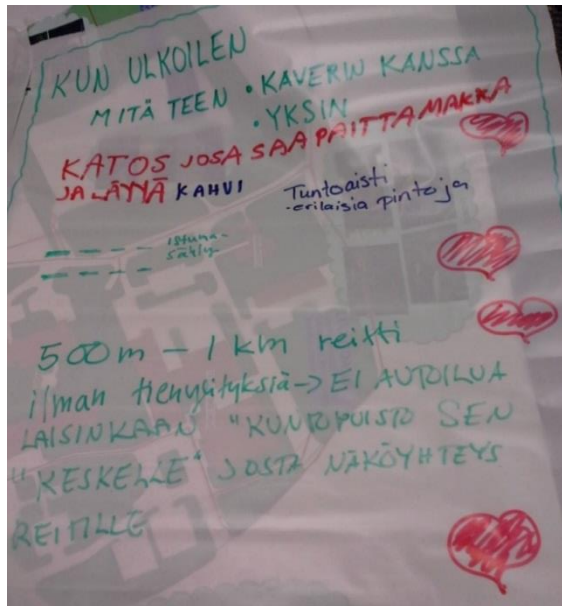 KUN ULKOILEN
MITÄ TEEN • KAVERIN KANSSA
• YKSIN
KATOS JOSA SAA PAITTA MAKKA
JA LÄNÄ KAHVI
Tuntoaisti
-erilaisia pintoja
500m – 1 km reitti
ilman tienylityksiä -> EI AUTOILUA
LAISINKAAN "KUNTOPUISTO SEN
"KESKELLE" JOSTA NÄKÖYHTEYS
REITILLE